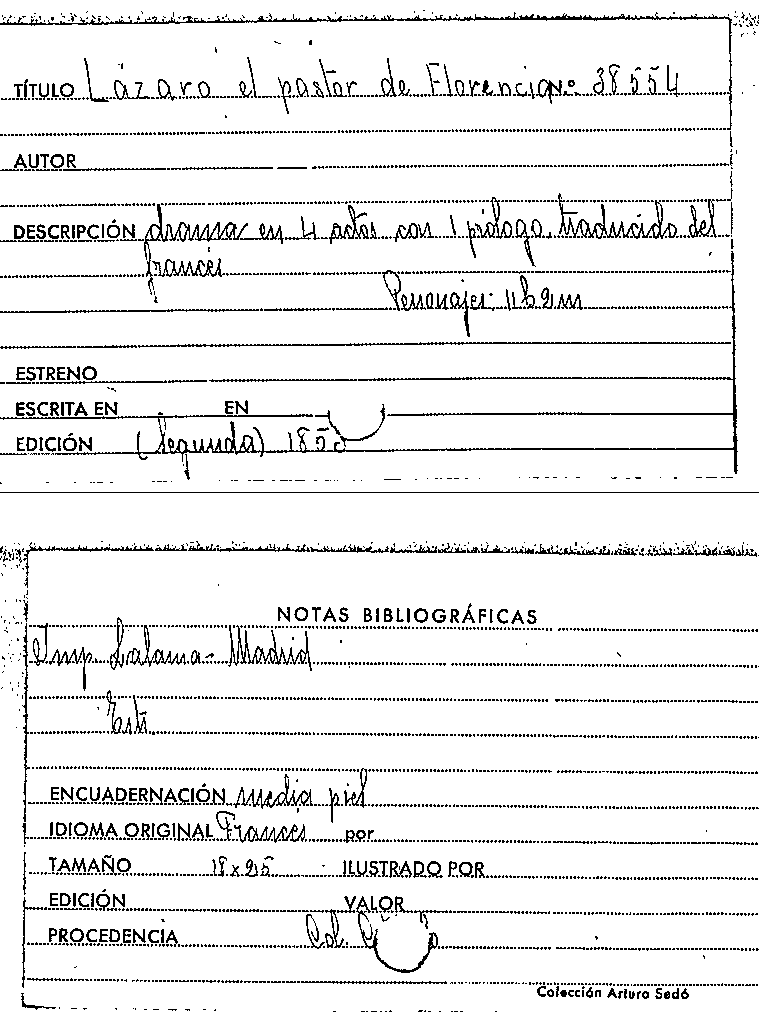 TÍTULO Lázaro el pastor de Florencia Nº 38554
AUTOR
DESCRIPCIÓN drama en 4 actos con 1 prólogo, traducido del
francés
Personajes: 11 h 2 m
ESTRENO
ESCRITA EN EN
EDICIÓN (Segunda)
NOTAS BIBLIOGRÁFICAS
Imp. Lalama - Madrid
ENCUADERNACIÓN media piel
IDIOMA ORIGINAL Francés por
TAMAÑO 18 x 25 ILUSTRADO POR
EDICIÓN VALOR
PROCEDENCIA Col.
Colección Arturo Sedó